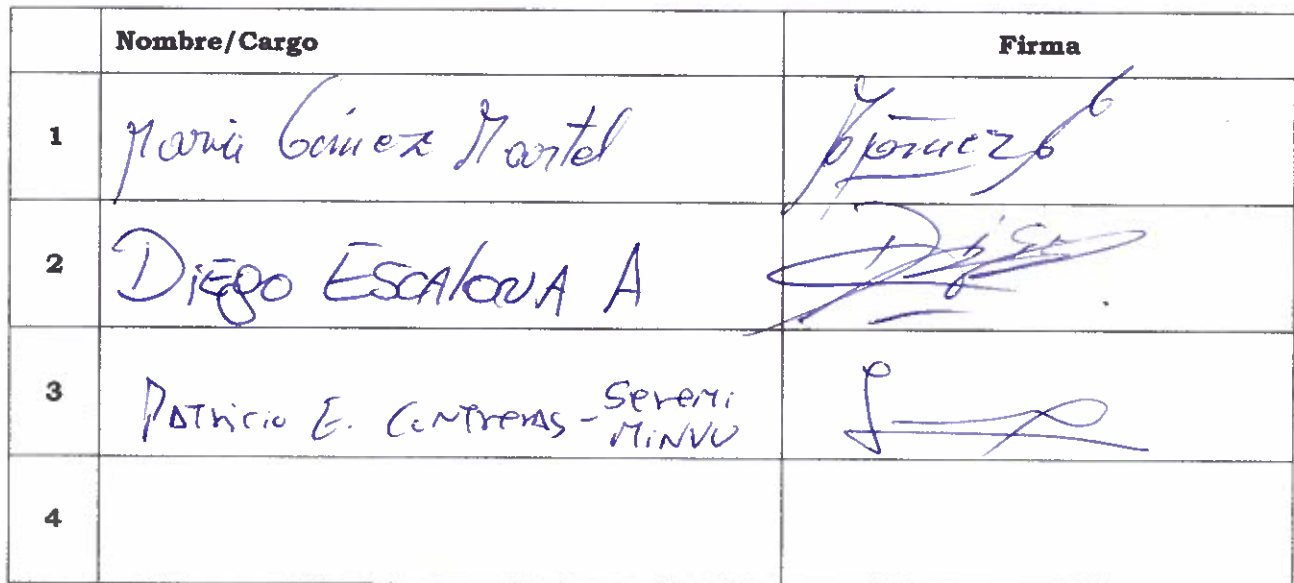 Nombre/Cargo Firma
1 Maria Gómez Martel
2 DiEgO ESCAlONA A
3 PATricio E. CoNTrerAS - Seremi
MiNVU
4